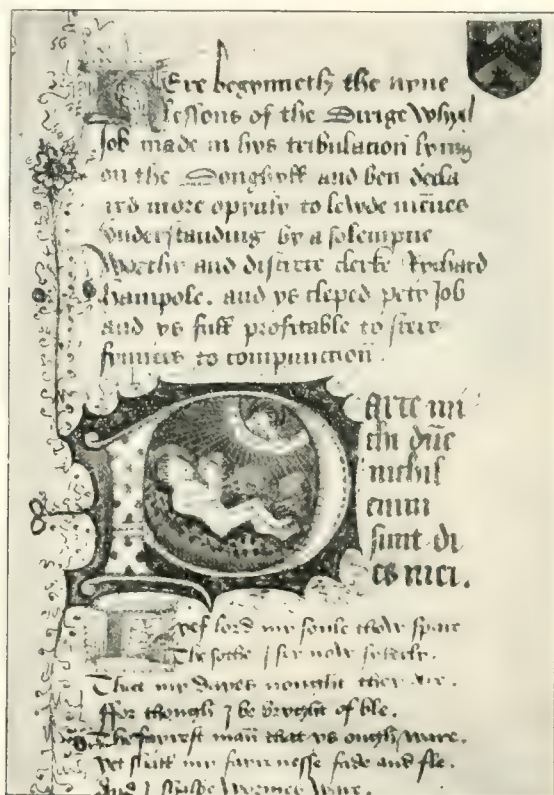 Ere begynneth the nyne
lessons of the Dirige Whych
Job made in hys tribulation lying
on the Donghyll and ben decla
ryd more opynly to lewde mennes
understanding by a solempne
Worthy and discrete clerke Rychard
Hampole. and ys cleped pety Job
and ys full profitable to stere
synners to compunction.
Parce mi
chi dne
nichil
enim
sunt di
es mei.
Lyef lord my soule thow spare
The sothe I sey now sykerly.
That my dayes nought they are.
ffor though I be bryght of ble.
The fayrest man that ys ough ware.
Yet shall my fayrnesse fade and fle.
And I shalbe Wormes Ware.